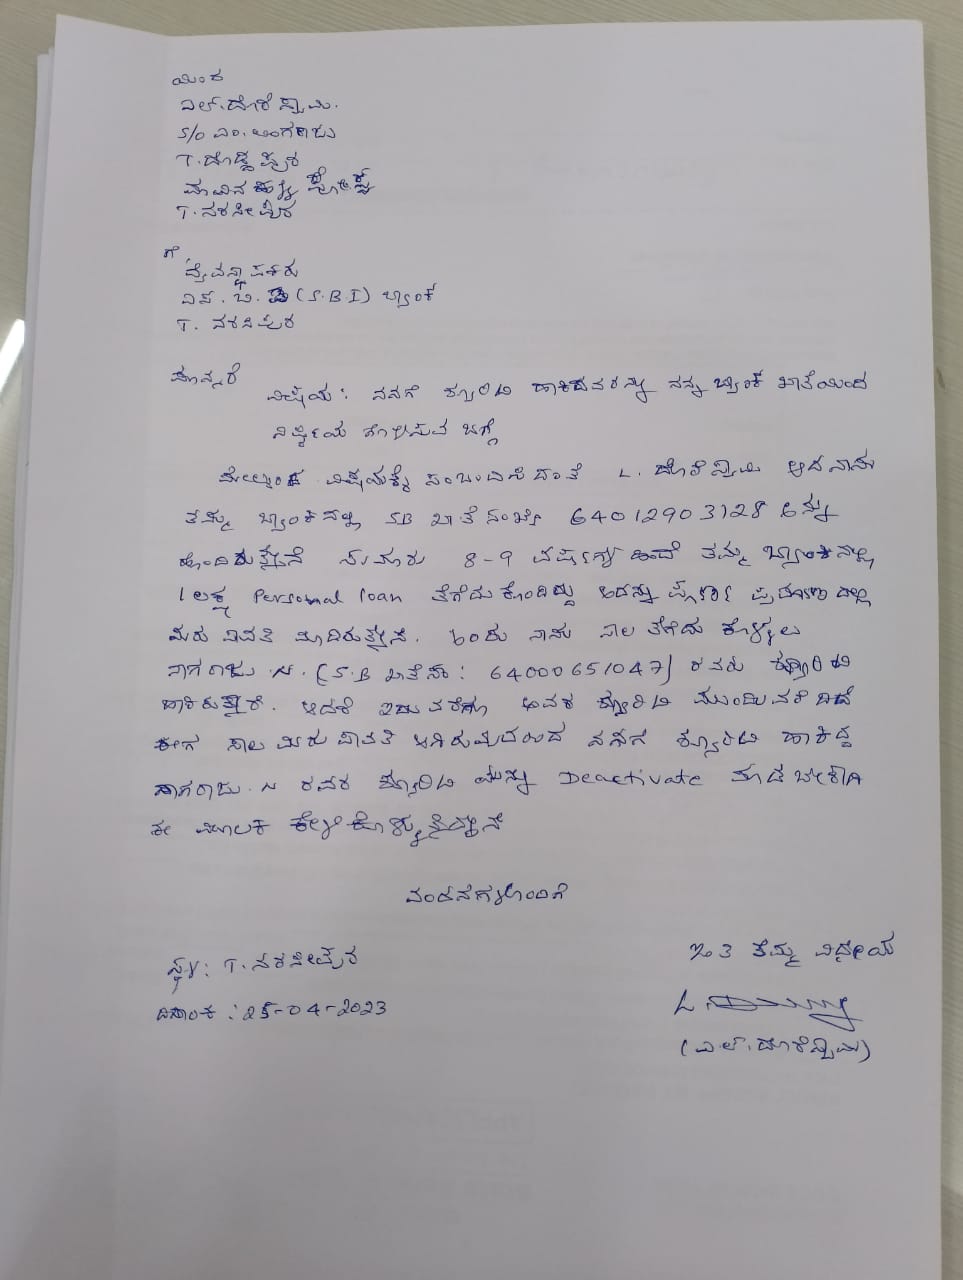 ಯಿಂದ
ಎಲ್. ದೊರೆಸ್ವಾಮಿ.
S/o ಎಂ. ಲಿಂಗರಾಜು
T. ದೊಡ್ಡಪುರ
ಮಾವಿನಹಳ್ಳಿ ಪೋಸ್ಟ್
T. ನರಸೀಪುರ
ಗೆ,
ವ್ಯವಸ್ಥಾಪಕರು
ಎಸ್. ಬಿ. ಐ (S.B.I) ಬ್ಯಾಂಕ್
T. ನರಸಿಪುರ
ಮಾನ್ಯರೆ
ವಿಷಯ: ನನಗೆ ಶ್ಯೂರಿಟಿ ಹಾಕಿದವರನ್ನು ನನ್ನ ಬ್ಯಾಂಕ್ ಖಾತೆಯಿಂದ
ನಿಷ್ಕ್ರಿಯ ಗೊಳಿಸುವ ಬಗ್ಗೆ
ಮೇಲ್ಕಂಡ ವಿಷಯಕ್ಕೆ ಸಂಬಂಧಿಸಿದಂತೆ L. ದೊರೆಸ್ವಾಮಿ ಆದ ನಾನು
ತಮ್ಮ ಬ್ಯಾಂಕಿನಲ್ಲಿ SB ಖಾತೆ ಸಂಖ್ಯೆ 64012903128 ಅನ್ನು
ಹೊಂದಿರುತ್ತೇನೆ ಸುಮಾರು 8-9 ವರ್ಷಗಳ ಹಿಂದೆ ತಮ್ಮ ಬ್ಯಾಂಕಿನಲ್ಲಿ
1 ಲಕ್ಷ Personal loan ತೆಗೆದುಕೊಂಡಿದ್ದು ಅದನ್ನು ಪೂರ್ಣ ಪ್ರಮಾಣದಲ್ಲಿ
ಮರು ಪಾವತಿ ಮಾಡಿರುತ್ತೇನೆ. ನಾನು ಸಾಲ ತೆಗೆದು ಕೊಳ್ಳಲು
ನಾಗರಾಜು. N. (S.B ಖಾತೆ ಸಂ: 64000651047) ರವರು ಶ್ಯೂರಿಟಿ
ಹಾಕಿರುತ್ತಾರೆ. ಆದರೆ ಇದುವರೆಗೂ ಅವರ ಶ್ಯೂರಿಟಿ ಮುಂದುವರೆದಿದೆ
ಈಗ ಸಾಲ ಮರು ಪಾವತಿ ಆಗಿರುವುದರಿಂದ ನನಗೆ ಶ್ಯೂರಿಟಿ ಹಾಕಿದ್ದ
ನಾಗರಾಜು. N ರವರ ಶ್ಯೂರಿಟಿ ಯನ್ನು Deactivate ಮಾಡಬೇಕಾಗಿ
ಈ ಮೂಲಕ ಕೇಳಿಕೊಳ್ಳುತ್ತಿದ್ದೇನೆ
ವಂದನೆಗಳೊಂದಿಗೆ
ಸ್ಥಳ: T. ನರಸೀಪುರ
ಇಂತಿ ತಮ್ಮ ವಿಧೇಯ
ದಿನಾಂಕ: 25-04-2023
(ಎಲ್. ದೊರೆಸ್ವಾಮಿ)